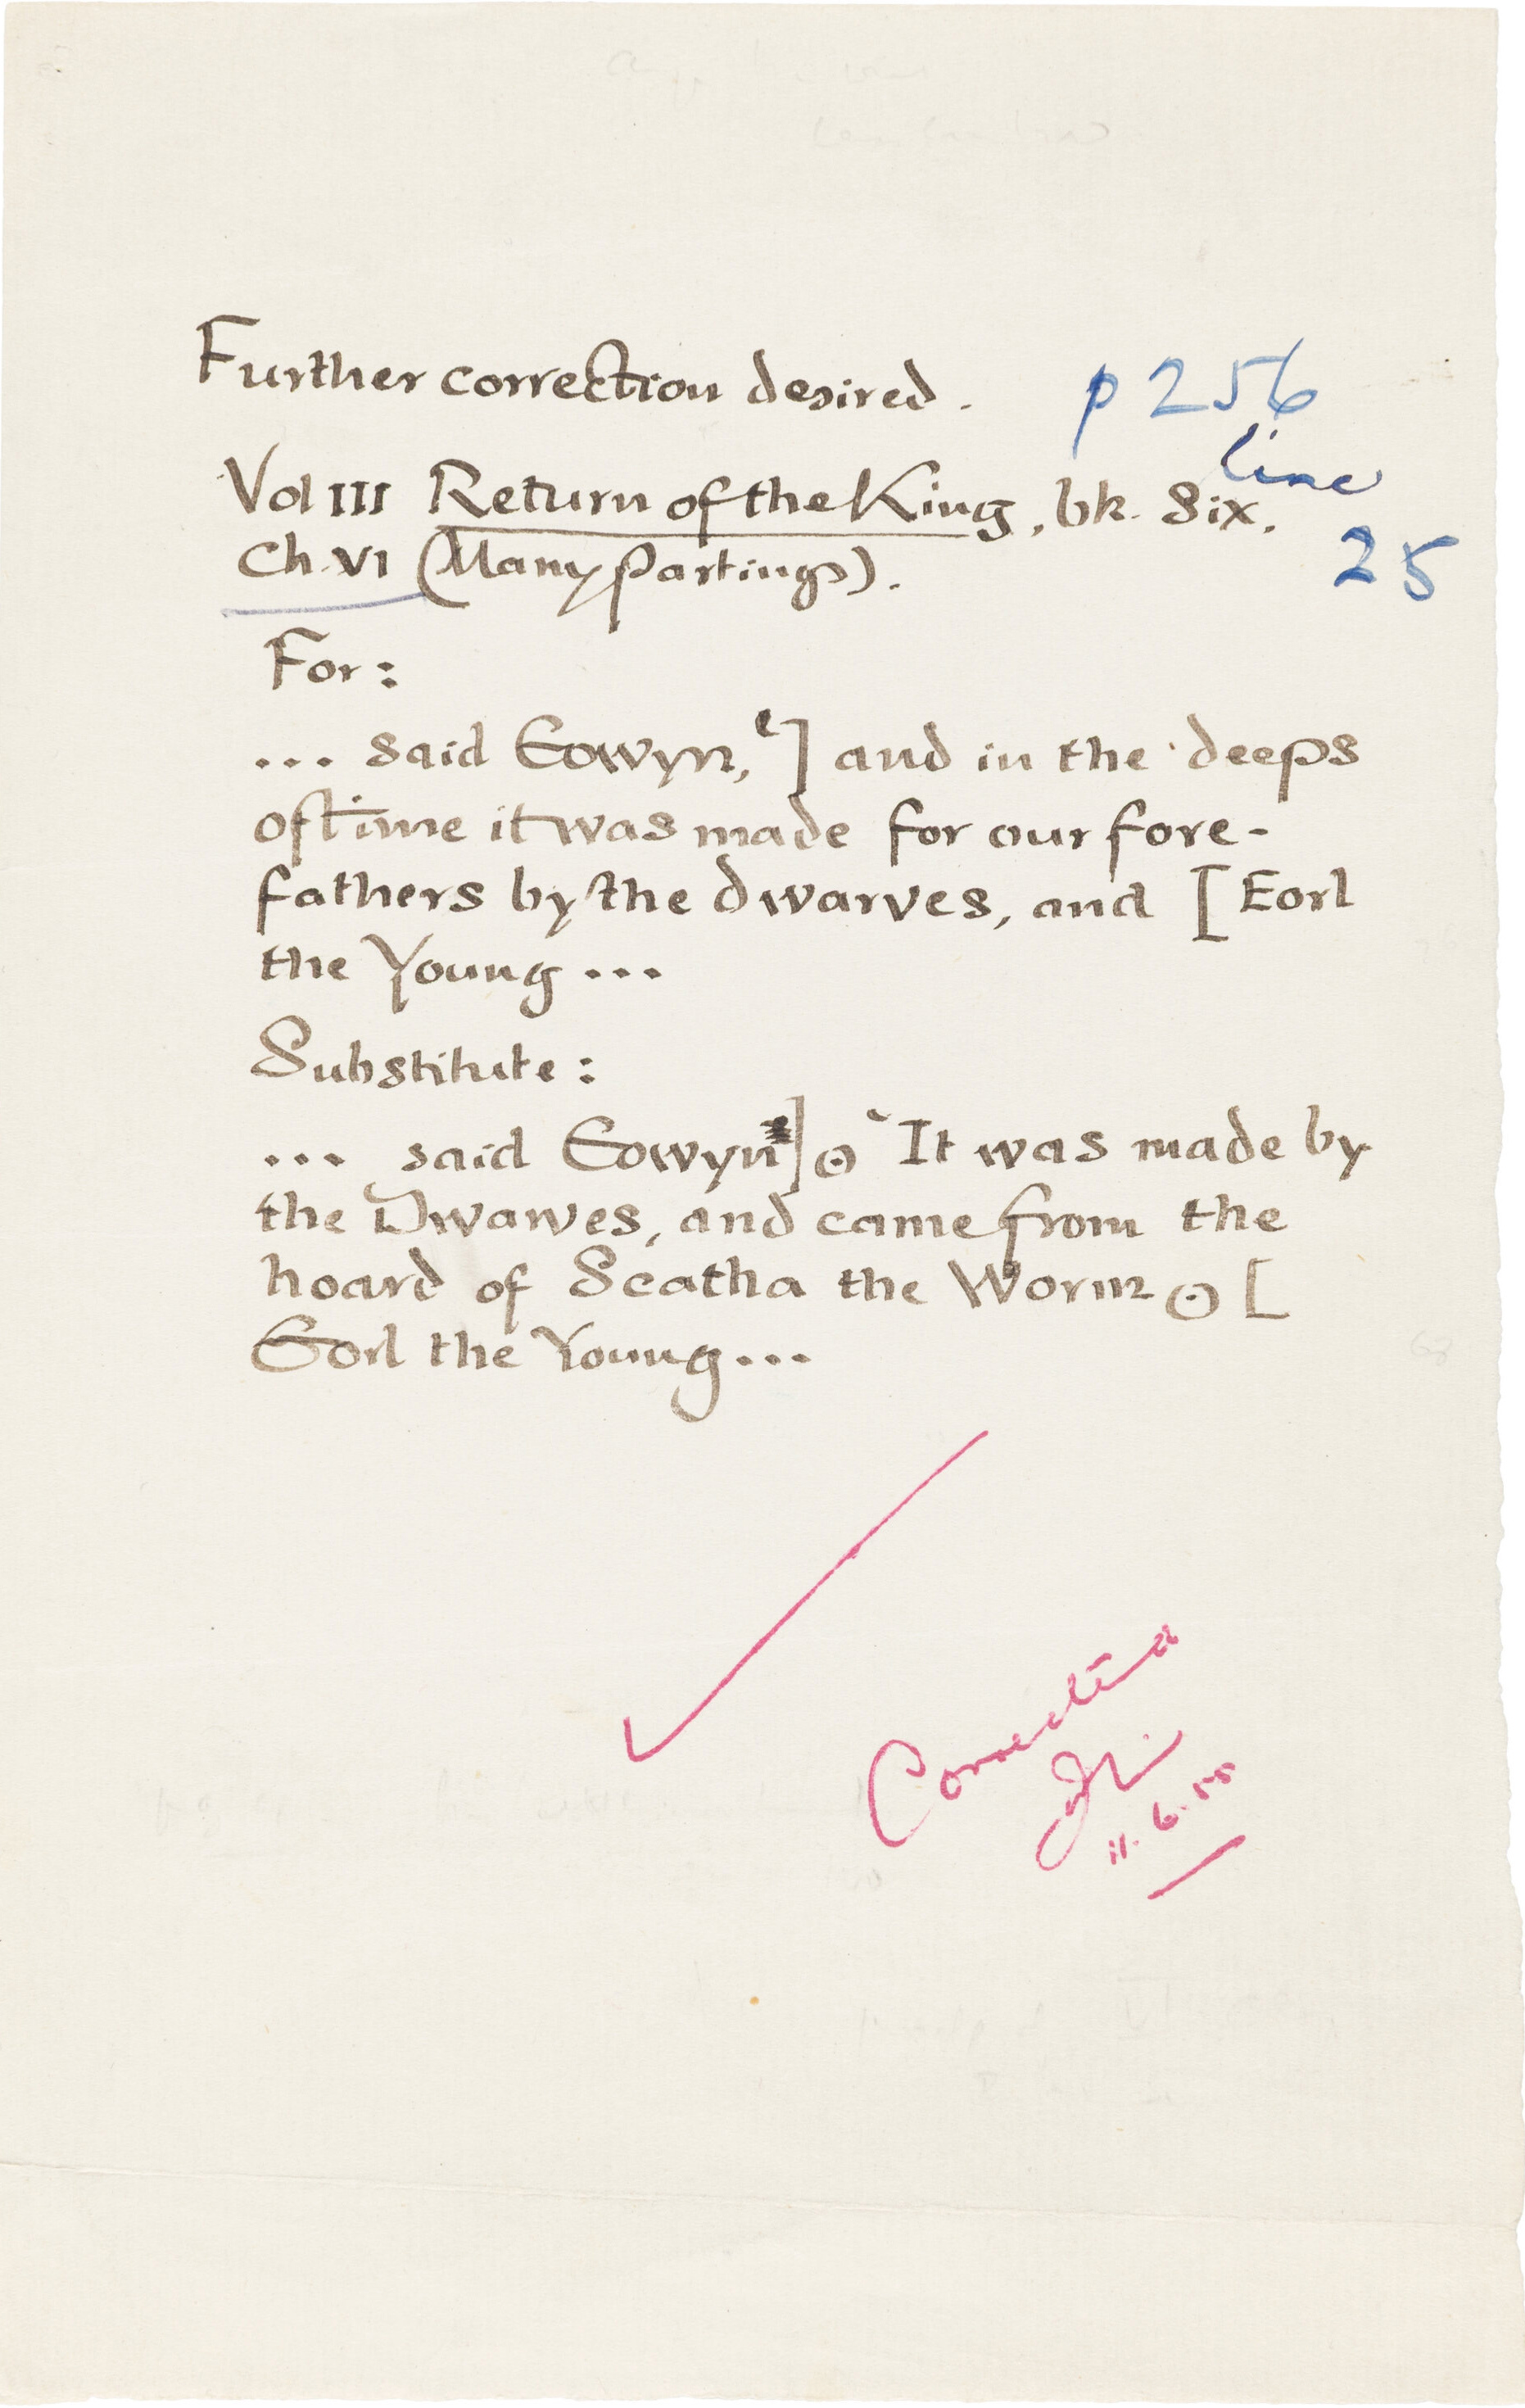 Further correction desired. p 256
line
Vol III Return of the King, bk. Six.
25
Ch. VI (Many Partings).
For:
... said Eowyn, '] and in the deeps
of time it was made for our fore-
fathers by the dwarves, and [ Eorl
the Young ...
Substitute:
... said Eowyn] ⊙ ‘It was made by
the Dwarves, and came from the
hoard of Scatha the Worm ⊙ [
Eorl the Young ...
11.6.55